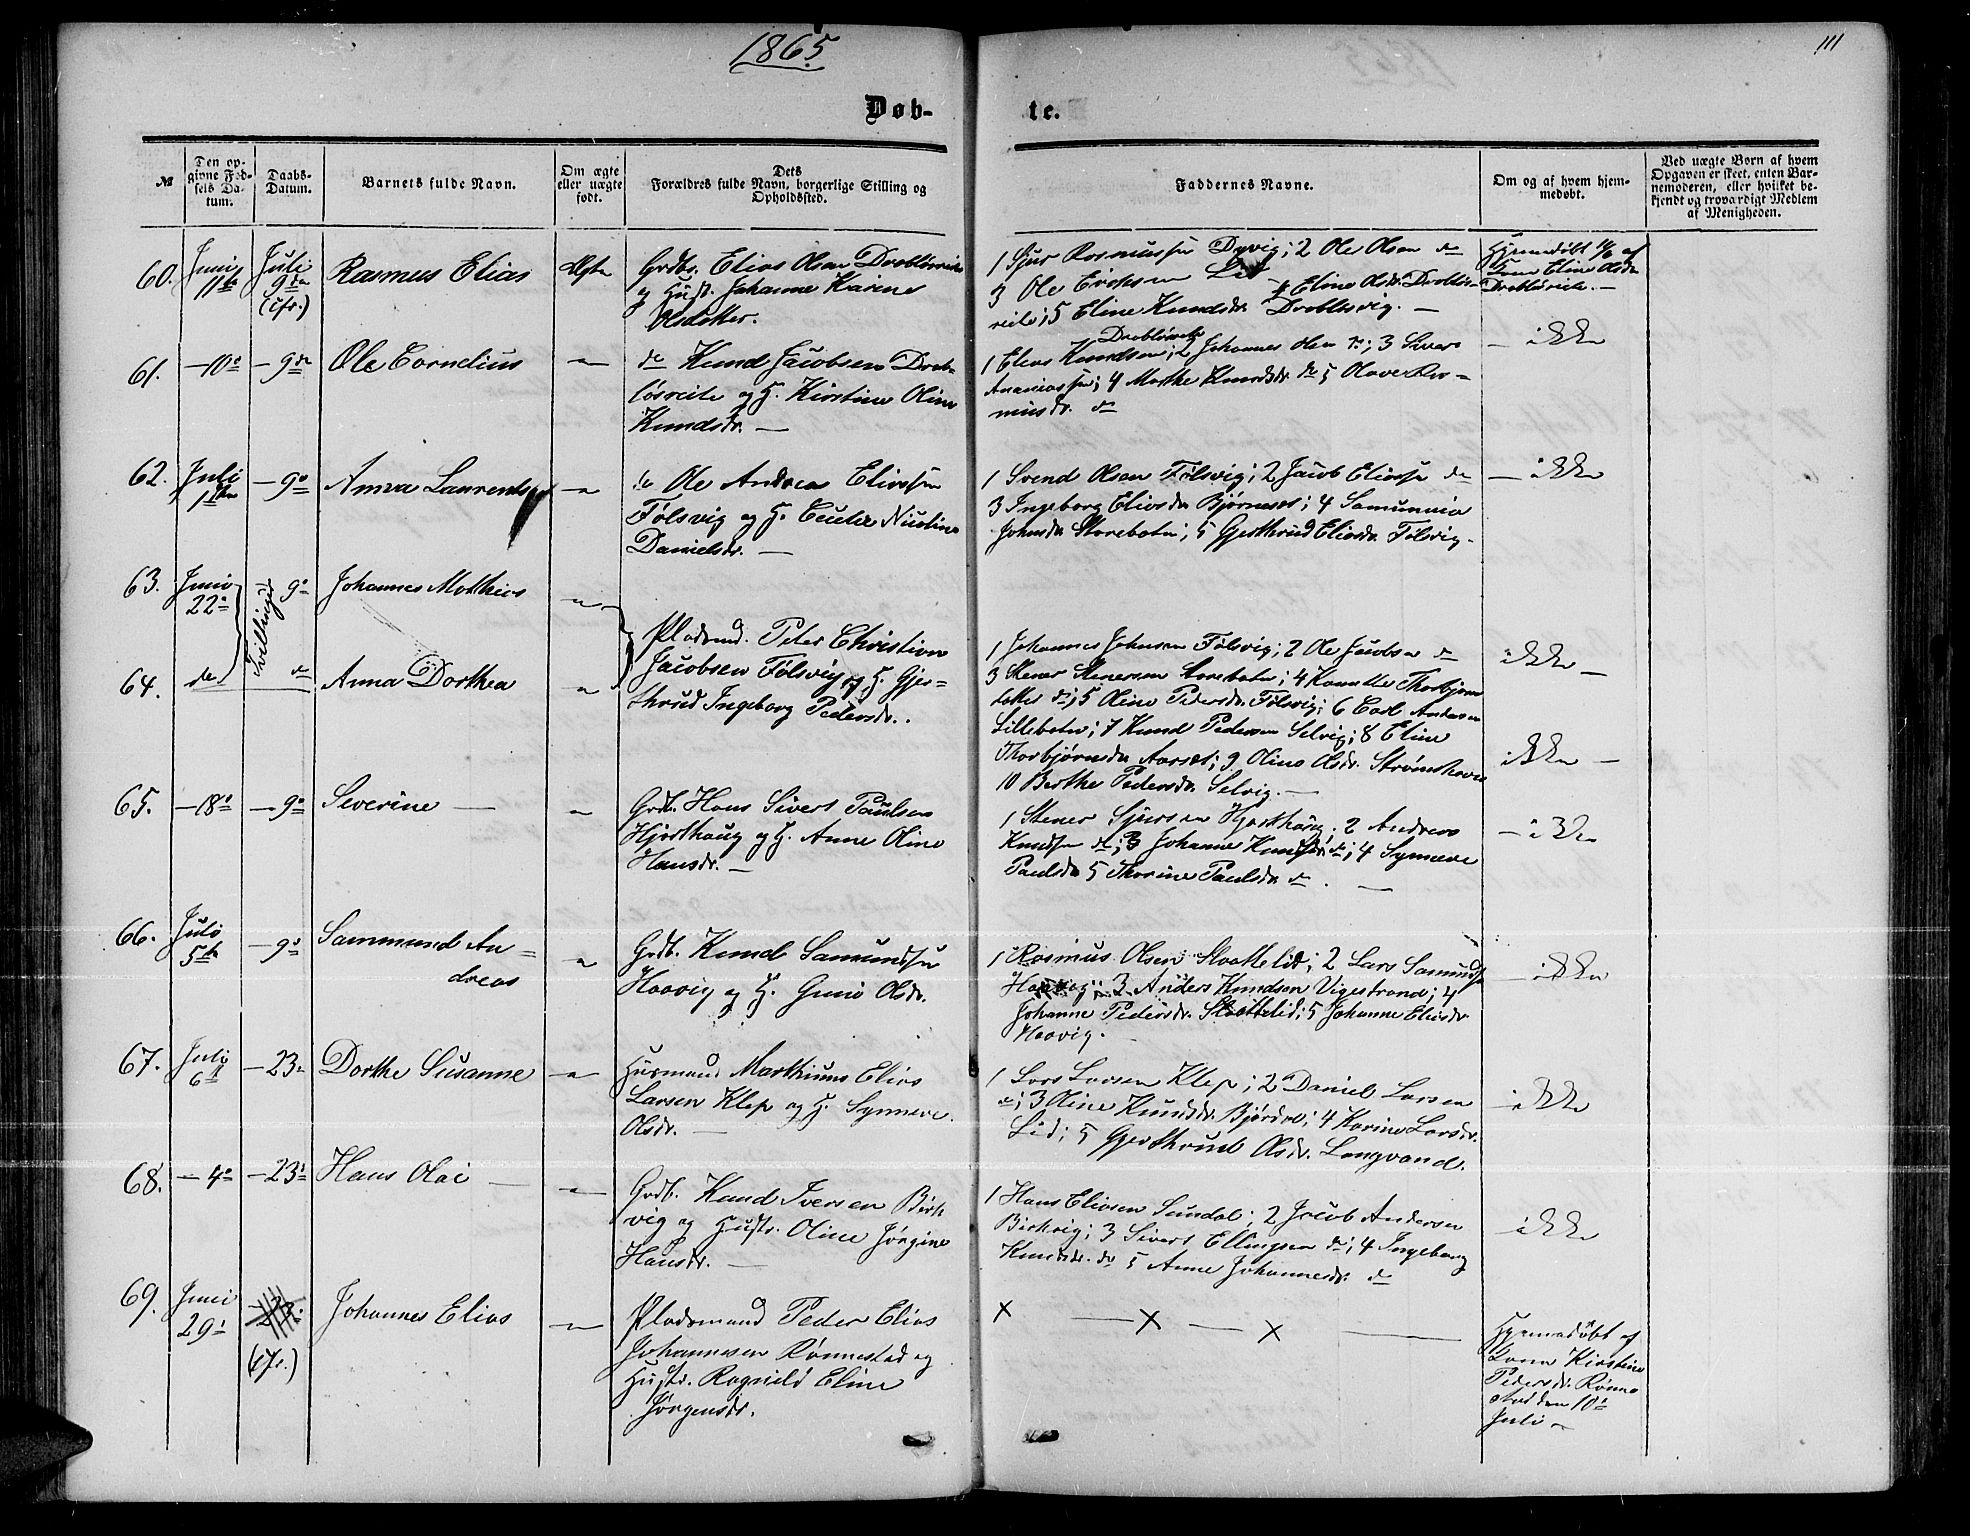 1865
111
Døb-
te.
№
Den op-
givne Fød-
sels Da-
tum.
Daabs-
Datum.
Barnets fulde Navn.
Om ægte
eller uægte
født.
Dets
Forældres fulde Navn, borgerlige Stilling og
Opholdssted.
Faddernes Navne.
Om og af hvem hjem-
medøbt.
Ved uægte Børn af hvem
Opgaven er skeet, enten Bar-
nemoderen, eller hvilket be-
kjendt og troværdigt Medlem
af Menigheden.
60.
Juni
11te
Juli
9de
(cfr.)
Rasmus Elias
Ægte
Grdb. Elias Olsen
og Hust. Johanne Karine
Olsdatter.
1 Sjur Rasmussen Dyvig; 2 Ole Olsen do
3 Ole Eriksen Lid 4 Eline Olsdr.
5 Eline Knudsdr.
Hjemmedøbt af
Eline Olsdr
61.
- 10de
- 9de
Ole Cornelius
do Knud Jacobsen
og H. Kirstine Oline
Knudsdr. -
1 Elias Knudsen; 2 Johannes Olsen do; 3 Siver
Ananiassen; 4 Marthe Knudsdr. do 5 Olave Ras-
musdr. do
- ikke
62.
Juli
1ste
- 9de
Anna Laurentse
do Ole Andreas Eliassen
Følsvig og H. Nicoline
Danielsdr. -
1 Svend Olsen Følsvig; 2 Jacob Eliassen do
3 Ingeborg Eliasdr Bjørnset; 4
Johnsdr Storebotn; 5 Gjerthrud Eliasdr. Følsvig.
- ikke
63.
Juni
22de
Tvillinger
9de
Johannes Mathias
Pladsmd. Peter Christian
Jacobsen Følsvig og H. Gjer-
thrud Ingeborg Pedersdr.
1 Johannes Johnsen Følsvig; 2 Ole Jacobsen do
3 Stener Stenersen Storebotn; 4 Thorbjørns
datter do; 5 Oline Pedersdr. Følsvig; 6 Carl Andersen
Lillebotn; 7 Knud Pedersen Selvig; 8 Eline
Thorbjørnsdr Aarset; 9 Oline Olsdr. Strømshavn
10 Berthe Pedersdr. Selvig. -
ikke -
64.
do
do
Anna Dorthea
ikke -
65.
- 18de
- 9de
Severine -
Grdb. Hans Sivert Paulsen
Hjorthaug og H. Anne Oline
Hansdr. -
1 Stener Sjursen Hjorthaug; 2 Andreas
Knudsen do; 3 Johanne Knudsdr. do; 4 Synneve
Paulsdr 5 Thorine Paulsdr do. -
- ikke
66.
Juli
5te
- 9de
Sammund An-
dreas
Grdb. Knud Samundsen
Haavig og H. Guro Olsdr.
1 Rasmus Olsen Slaattelid; 2 Lars Samundsen
Haavig; 3 Anders Knudsen Vigestrand; 4
Johanne Pedersdr. Slaattelid; 5 Johanne Eliasdr
Haavig.
- ikke
67.
Juli
6te
- 23de
Dorthe Susanne
Husmand Mathias Elias
Larsen Klep og H. Synneve
Olsdr. -
1 Lars Larsen Klep; 2 Daniel Larsen
do; 3 Oline Knudsdr. Bjørdal; 4 Karine Larsdr.
Lid; 5 Gjerthrud Olsdr. Langvand.
- ikke
68.
- 4de
- 23de
Hans Olai -
Grdb. Knud Iversen Birk-
vig og Hustr. Oline Jørgine
Hansdr. -
1 Hans Eliasen Sundal; 2 Jacob Andersen
Birkvig; 3 Sivert Ellingsen do; 4 Ingeborg
Knudsdr. do 5 Anne Johannesdr. do
- ikke
69.
Juni
29de
23de
Johannes Elias
Pladsmand Peder Elias
Johannesen Rønnestad og
Hustr. Ragnild Eline
Jørgensdr.
x - x - x -
Hjemmedøbt af
Kirstine
Pedersdr. Rønne-
stad den 10de
Juli -